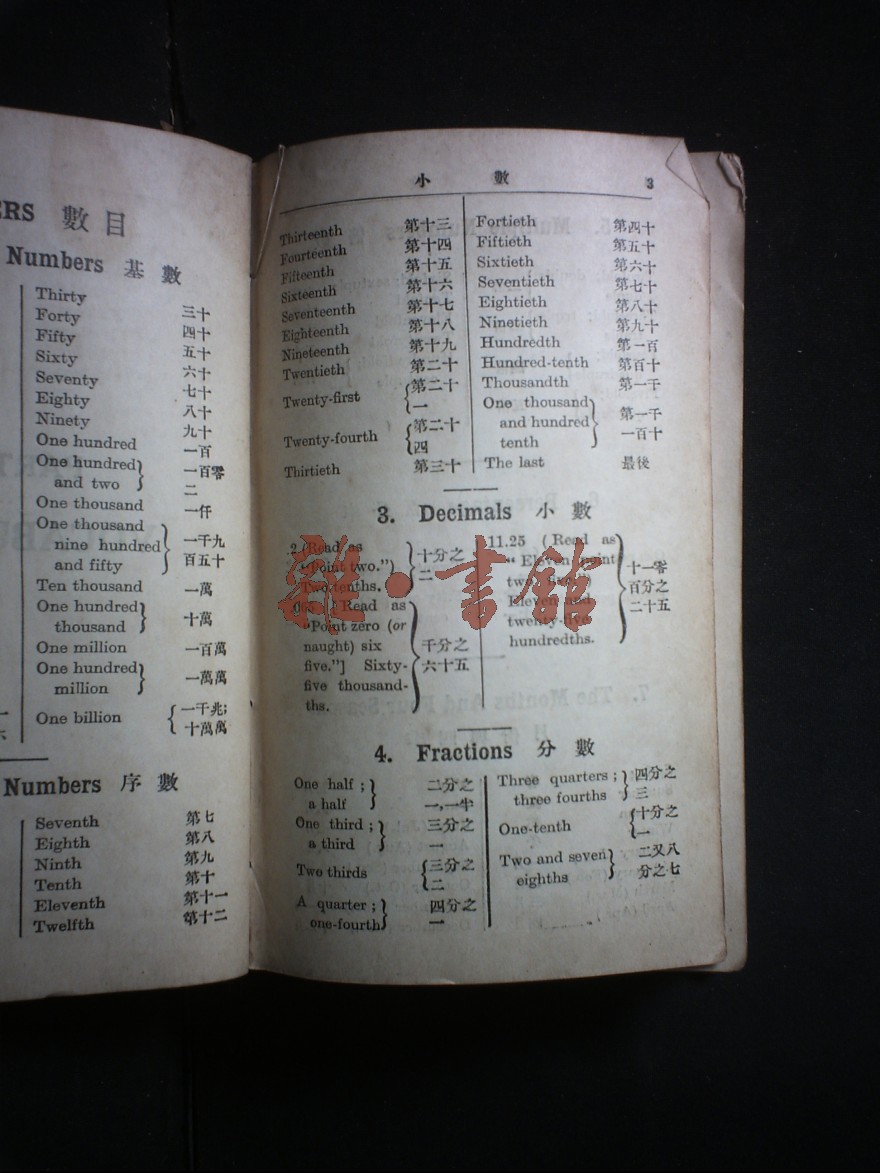 ERS 數目
Numbers 基數
Thirty 三十
Forty 四十
Fifty 五十
Sixty 六十
Seventy 七十
Eighty 八十
Ninety 九十
One hundred 一百
One hundred 一百零
and two 二
One thousand 一仟
One thousand
nine hundred 一千九
and fifty 百五十
Ten thousand 一萬
One hundred
thousand 十萬
One million 一百萬
One hundred
million 一萬萬
One billion 一千兆;
十萬萬
Numbers 序數
Seventh 第七
Eighth 第八
Ninth 第九
Tenth 第十
Eleventh 第十一
Twelfth 第十二
小數 3
Thirteenth 第十三
Fourteenth 第十四
Fifteenth 第十五
Sixteenth 第十六
Seventeenth 第十七
Eighteenth 第十八
Nineteenth 第十九
Twentieth 第二十
Twenty-first 第二十
一
Twenty-fourth 第二十
四
Thirtieth 第三十
Fortieth 第四十
Fiftieth 第五十
Sixtieth 第六十
Seventieth 第七十
Eightieth 第八十
Ninetieth 第九十
Hundredth 第一百
Hundred-tenth 第百十
Thousandth 第一千
One thousand
and hundred 第一千
tenth 一百十
The last 最後
3. Decimals 小數
.2 (Read as 十分之
"Point two.") 二
Two tenths.
[Read as
"Point zero (or
naught) six 千分之
five."] Sixty- 六十五
five thousand-
ths.
11.25 (Read as
"Eleven point 十一零
two 百分之
Eleven and 二十五
twenty-five
hundredths.
雜·書館
4. Fractions 分數
One half; 二分之
a half 一,一半
One third; 三分之
a third 一
Two thirds 三分之
二
A quarter; 四分之
one-fourth 一
Three quarters; 四分之
three fourths 三
One-tenth 十分之
一
Two and seven 二又八
eighths 分之七